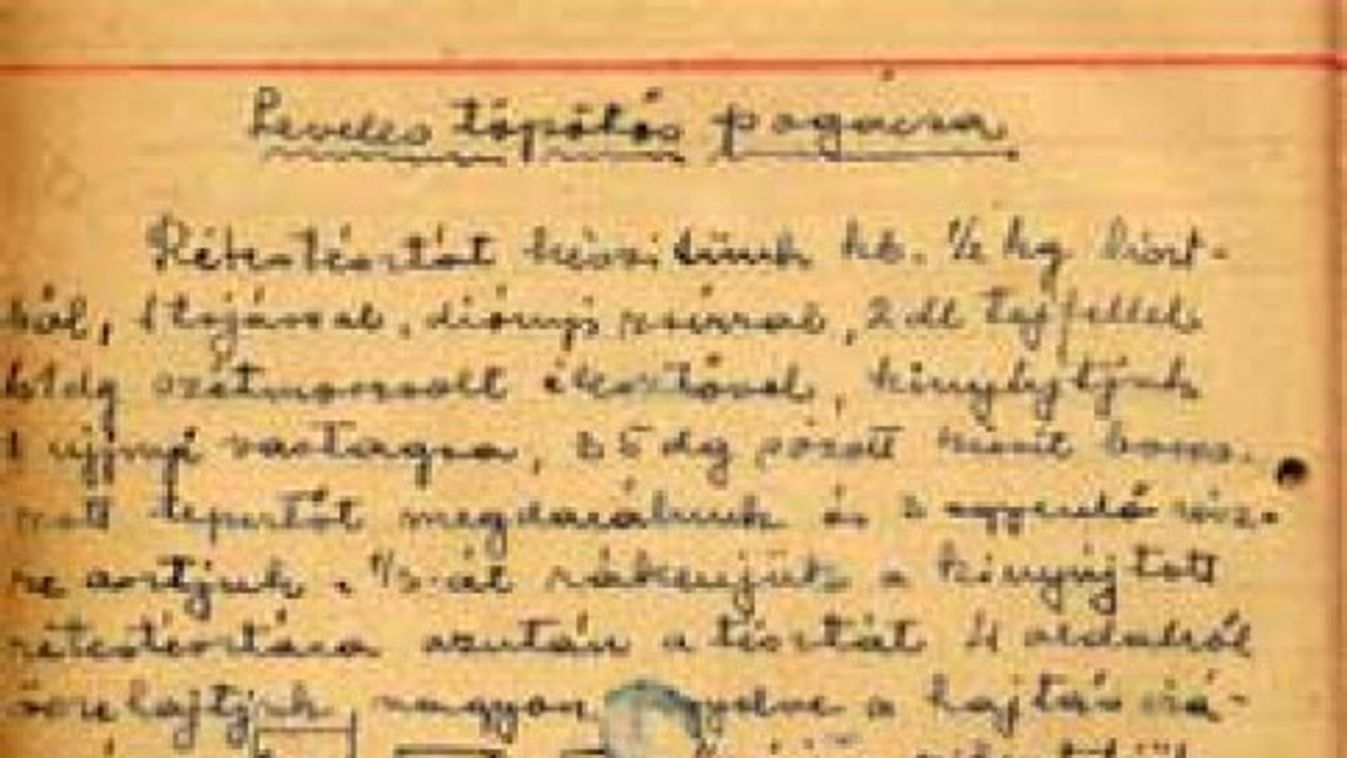 Leveles töpötős pogácsa
Rétestésztát készitünk kb. ½ kg liszt-
ből, 1 tojással, diónyi zsirral, 2 dl tejfellel
dg szétmorzsolt élesztővel, kinyujtjuk
1 ujjnyi vastagra, 35 dg sózott
tepertőt megdarálunk és 3 egyenlő rész-
re osztjuk. ⅓-át rákenjük a kinyujtott
rétestésztára azután a tésztát 4 oldalról
összehajtjuk, nagyon a hajtás